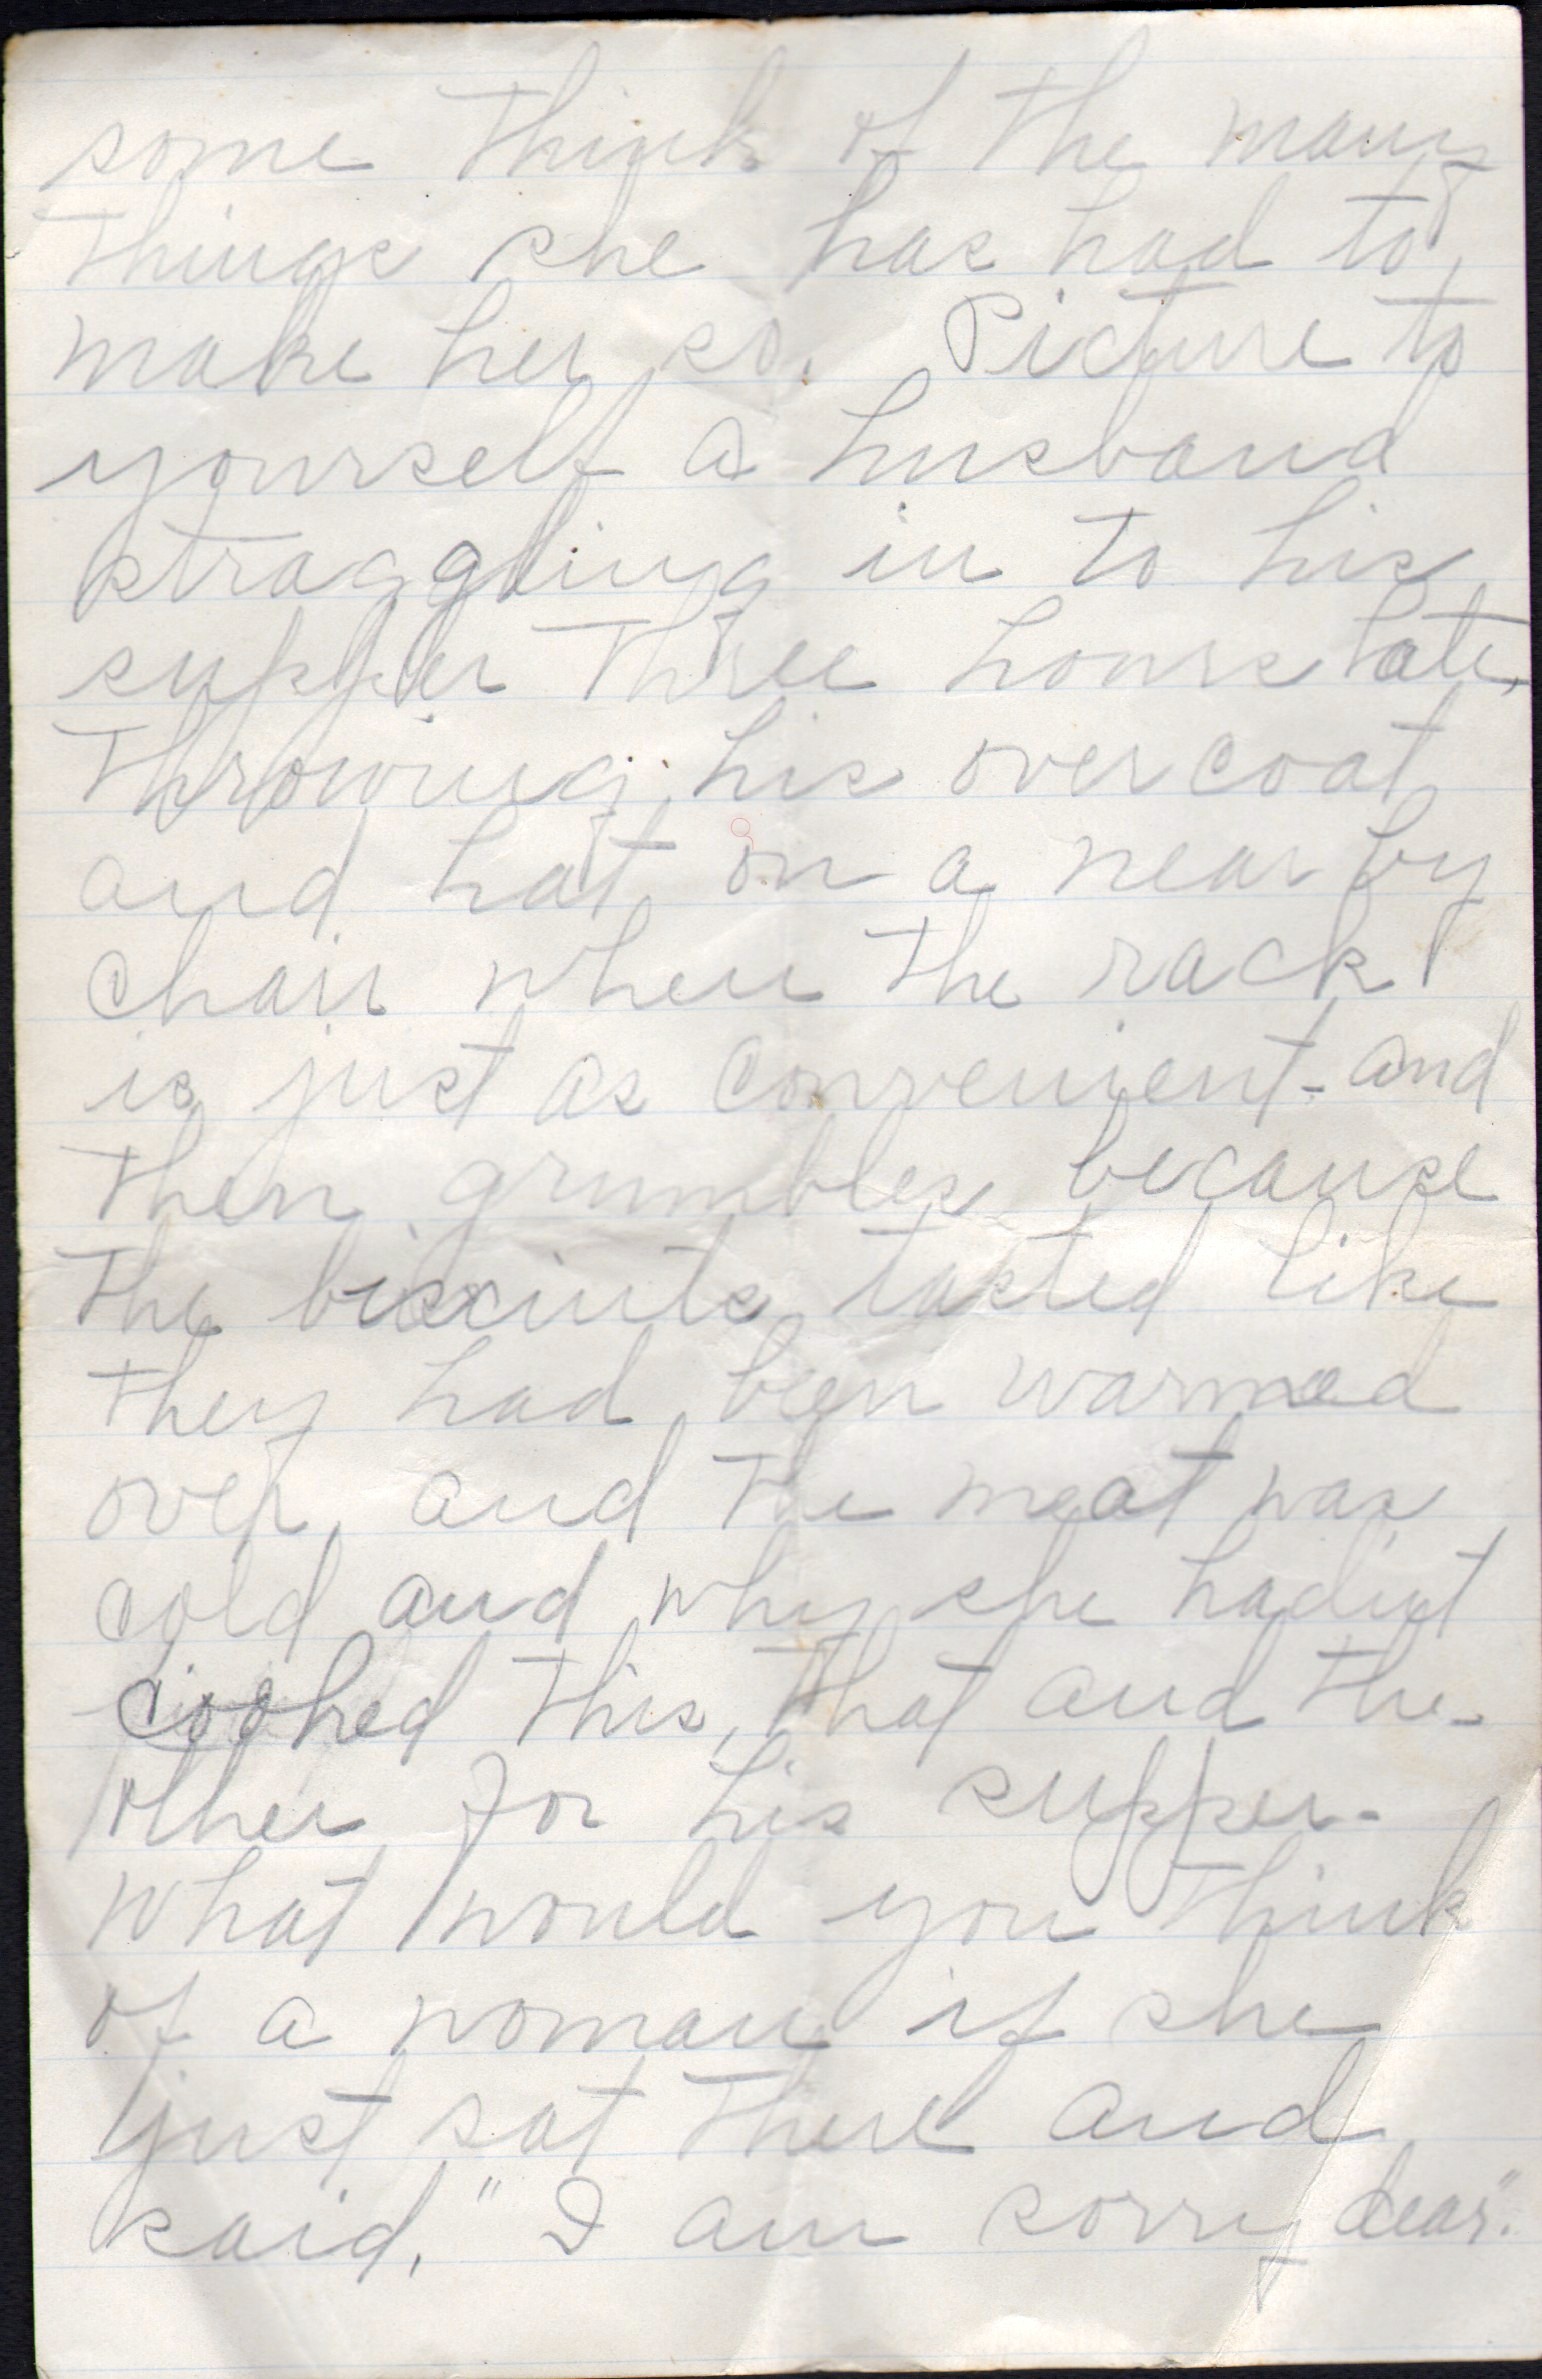 some think of the many
things she has had to
make her so. Picture to
yourself a husband
straggling in to his
supper three hours late,
throwing his overcoat
and hat on a near by
chair when the rack
is just as convenient - and
then grumbles because
the biscuits tasted like
they had been warmed
over, and the meat was
cold and why she hadn't
cooked this, that and the -
other for his supper -
What would you think
of a woman if she
just sat there and
said, "I am sorry dear".